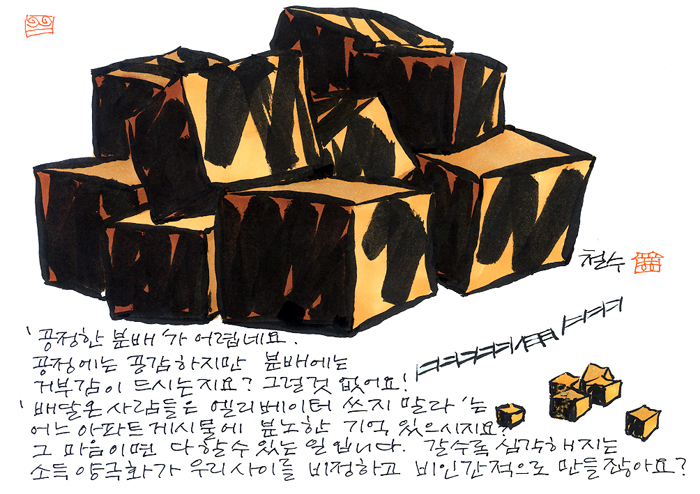 철수
'공정한 분배'가 어렵네요.
공정에는 공감하지만 분배에는
거부감이 드시는지요? 그럴것 없어요!
'배달온 사람들은 엘리베이터 쓰지 말라'는
어느 아파트 게시물에 분노한 기억 있으시지요?
그 마음이면 다 할 수 있는 일입니다. 갈수록 심각해지는
소득 양극화가 우리 사이를 비정하고 비인간적으로 만들잖아요?